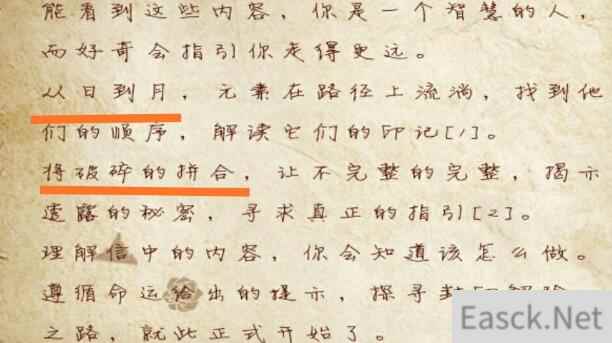 能看到这些内容，你是一个智慧的人，
而好奇会指引你走得更远。
从日到月，元素在路径上流淌，找到他
们的顺序，解读它们的印记[1]。
将破碎的拼合，让不完整的完整，揭示
遗露的秘密，寻求真正的指引[2]。
理解信中的内容，你会知道该怎么做。
遵循命运给出的提示，探寻
之路，就此正式开始了。
Easck.Net